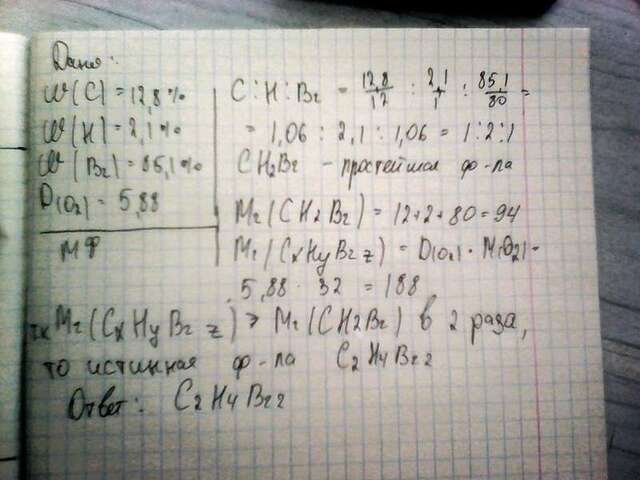 Дано:
W(C) = 12,8%
W(H) = 2,1%
W(Br) = 85,1%
D(O2) = 5,88
МФ
C:H:Br = 12,8/12 : 2,1/1 : 85,1/80 =
= 1,06 : 2,1 : 1,06 = 1:2:1
CH2Br - простейшая ф-ла
Mr(CH2Br) = 12+2+80=94
Mr(CxHyBrz) = D(O2) · M(O2) =
5,88 · 32 = 188
тк Mr(CxHyBrz) > Mr(CH2Br) в 2 раза,
то истинная ф-ла C2H4Br2
Ответ: C2H4Br2